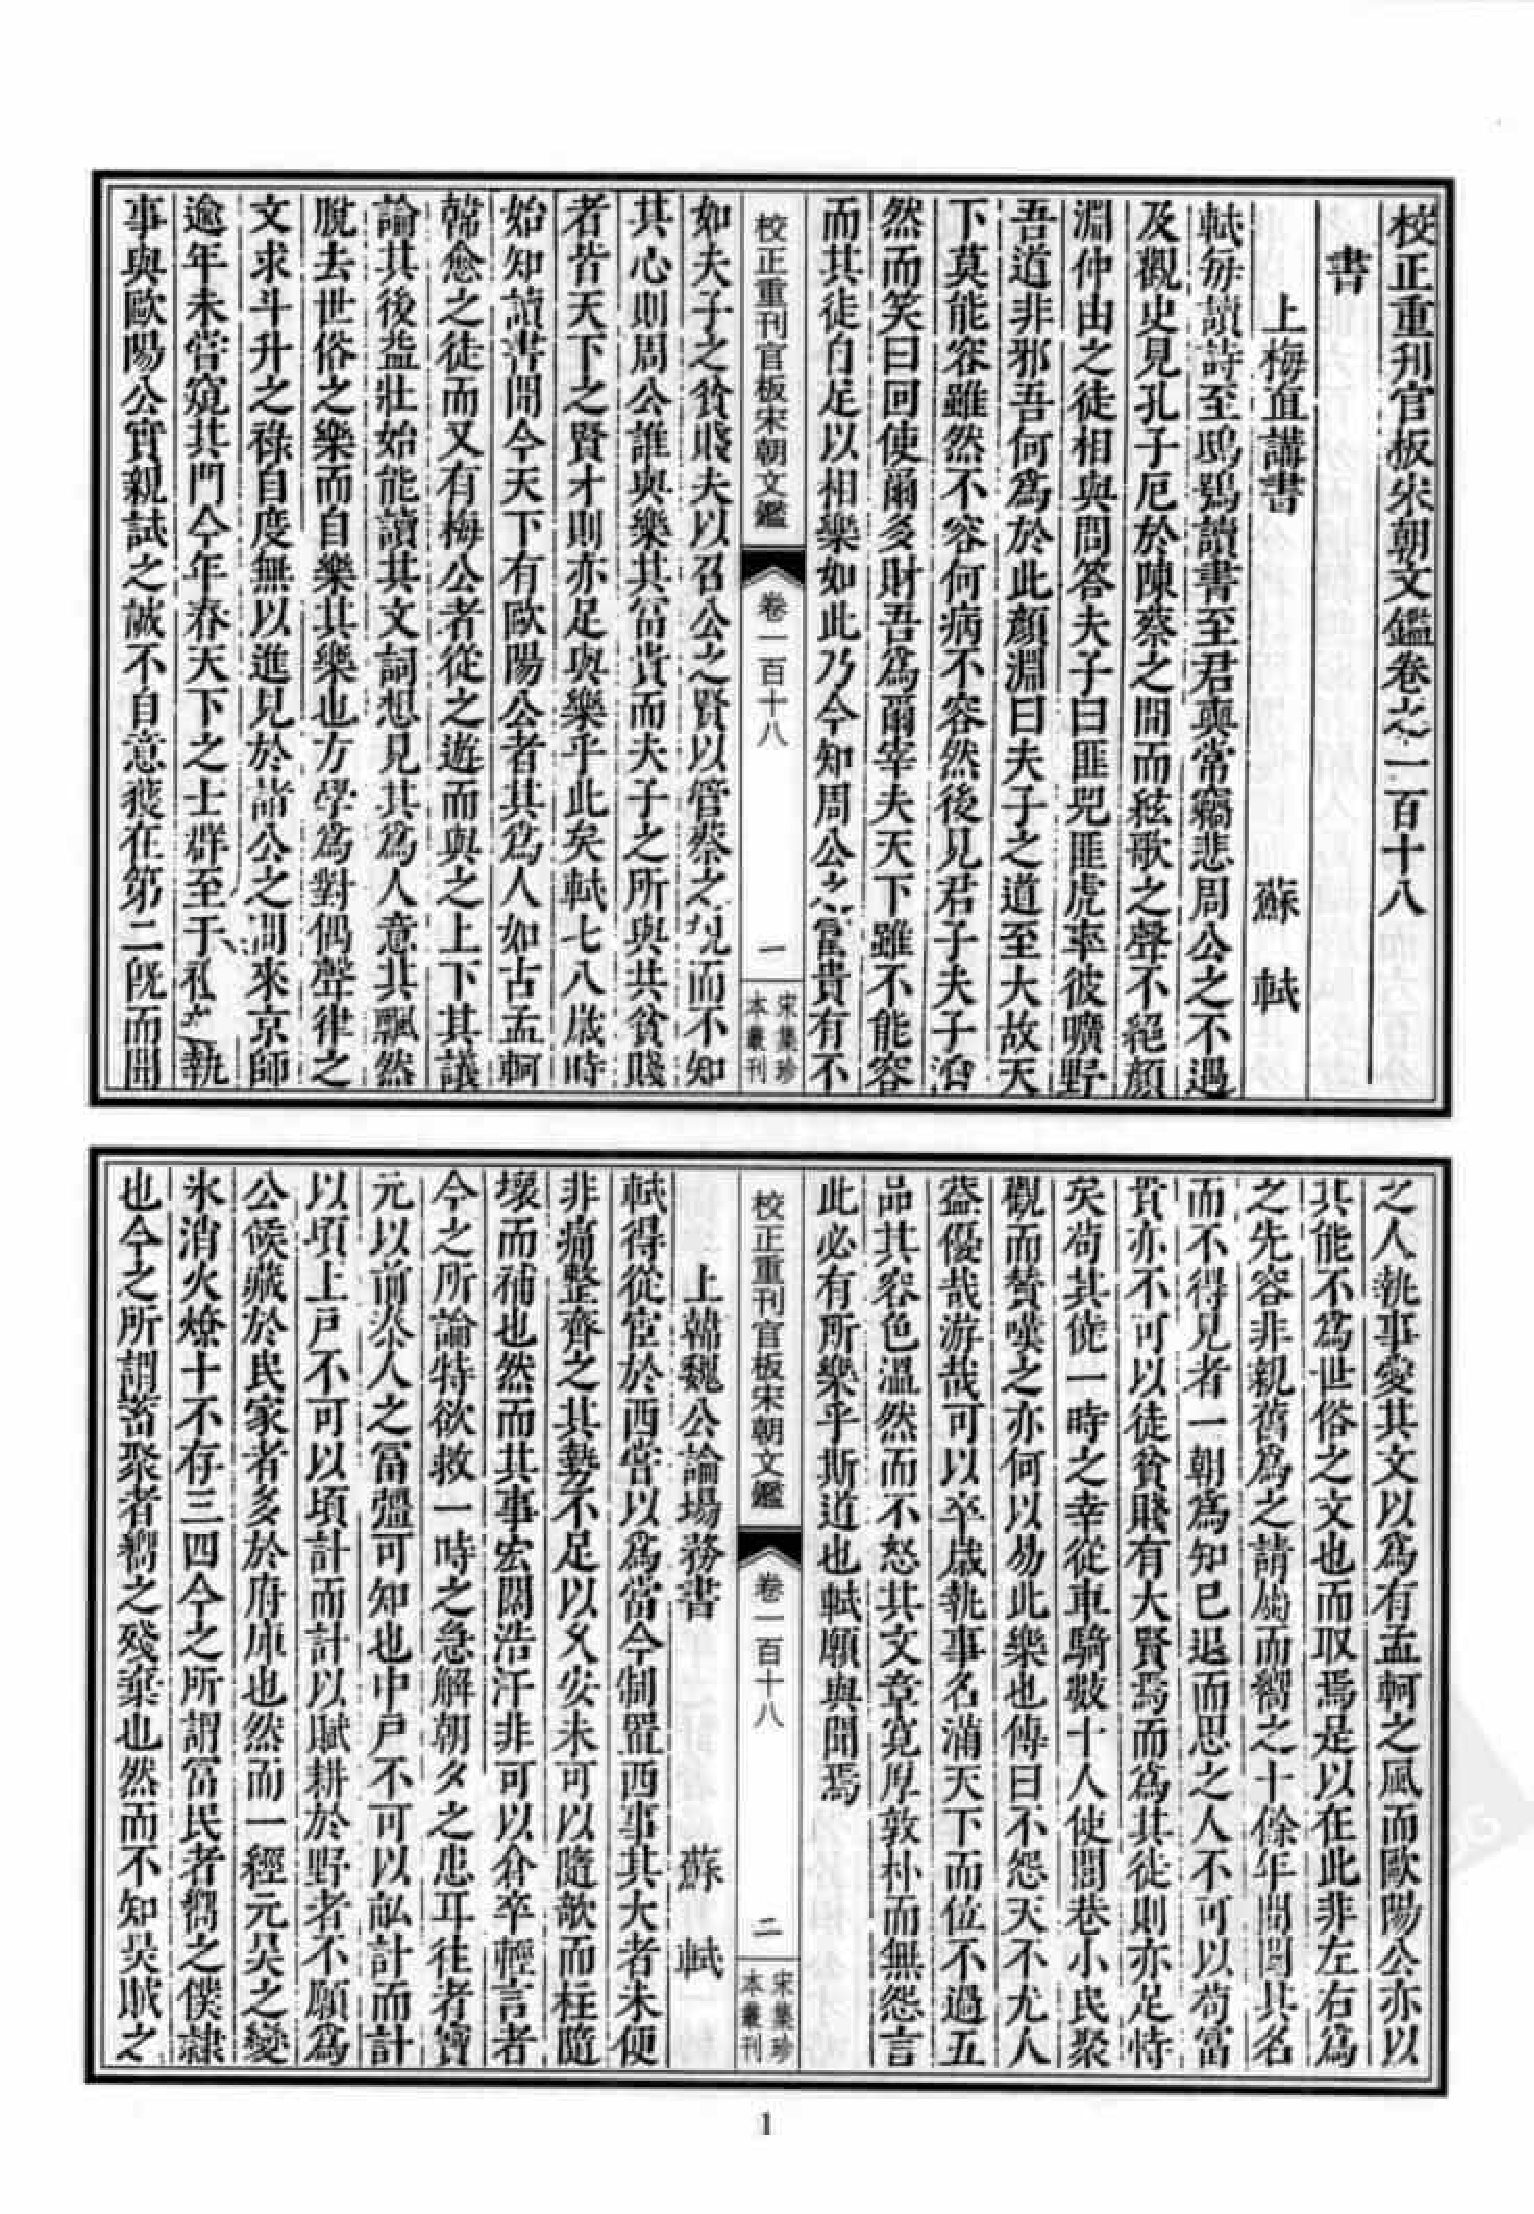 校正重刊官板宋朝文鑑卷之一百十八
書
上梅直講書 蘇軾
軾每讀詩至鴟鴞讀書至君奭常竊悲周公之不遇
及觀史見孔子厄於陳蔡之間而絃歌之聲不絕顏
淵仲由之徒相與問答夫子曰匪兕匪虎率彼曠野
吾道非邪吾何為於此顏淵曰夫子之道至大故天
下莫能容雖然不容何病不容然後見君子夫子油
然而笑曰回使爾多財吾為爾宰夫天下雖不能容
而其徒自足以相樂如此乃今知周公之富貴有不
校正重刊官板宋朝文鑑 卷一百十八 一 宋集珍本叢刊
如夫子之貧賤夫以召公之賢以管蔡之親而不知
其心則周公誰與樂其富貴而夫子之所與共貧賤
者皆天下之賢才則亦足與樂乎此矣軾七八歲時
始知讀書聞今天下有歐陽公者其為人如古孟軻
韓愈之徒而又有梅公者從之遊而與之上下其議
論其後益壯始能讀其文詞想見其為人意其飄然
脫去世俗之樂而自樂其樂也方學為對偶聲律之
文求斗升之祿自度無以進見於諸公之間來京師
逾年未嘗窺其門今年春天下之士群至于禮 執
事與歐陽公實親試之誠不自意獲在第二既而聞
之人執事愛其文以為有孟軻之風而歐陽公亦以
其能不為世俗之文也而取焉是以在此非左右為
之先容非親舊為之請屬而嚮之十餘年間聞其名
而不得見者一朝為知已退而思之人不可以苟富
貴亦不可以徒貧賤有大賢焉而為其徒則亦足恃
矣苟其從一時之幸從車騎數十人使閭巷小民聚
觀而贊嘆之亦何以易此樂也傳曰不怨天不尤人
蓋優哉游哉可以卒歲執事名滿天下而位不過五
品其容色溫然而不怒其文章寬厚敦朴而無怨言
此必有所樂乎斯道也軾願與聞焉
校正重刊官板宋朝文鑑 卷一百十八 二 宋集珍本叢刊
上韓魏公論場務書 蘇軾
軾得從宦於西嘗以為當今制置西事其大者未便
非痛整齊之其勢不足以久安未可以隨欹而柱隨
壞而補也然而其事宏闊浩汗非可以倉卒輕言者
今之所論特欲救一時之急解朝夕之患耳往者寶
元以前秦人之富彊可知也中戶不可以畝計而計
以頃上戶不可以頃計而計以賦耕於野者不願為
公候藏於民家者多於府庫也然而一經元昊之變
氷消火燎十不存三四今之所謂富民者嚮之僕隸
也今之所謂蓄聚者嚮之殘棄也然而不知昊賊之
1